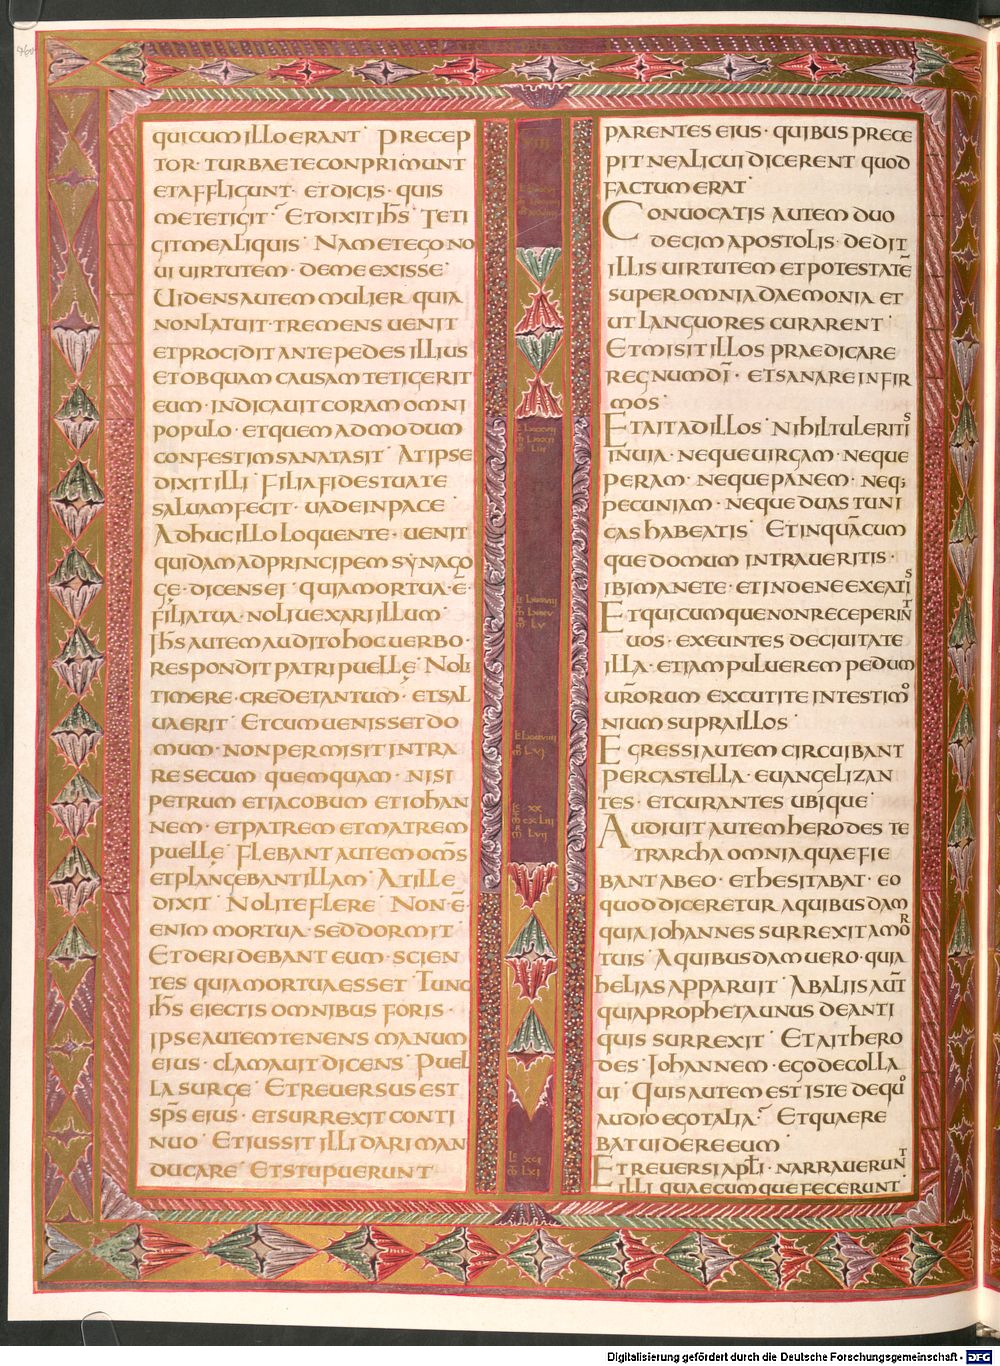 QUICUMILLOERANT· PRECEP
TOR· TURBAETECONPRIMUNT
ETAFFLIGUNT· ETDICIS· QUIS
METETIGIT· ETDIXIT IHS̄· TETI
GITMEALIQUIS· NAMETEGO NO
UI UIRTUTEM· DEMEEXISSE·
UIDENSAUTEMMULIER QUIA
NONLATUIT· TREMENS UENIT
ETPROCIDIT ANTE PEDES ILLIUS
ETOBQUAM CAUSAM TETIGERIT
EUM· INDICAUIT CORAM OMNI
POPULO· ETQUEM AD MODUM
CONFESTIMSANATASIT· ATIPSE
DIXIT ILLI· FILIA FIDESTUATE
SALUAMFECIT· UADE IN PACE·
ADHUC ILLO LOQUENTE· UENIT
QUIDAM ADPRINCIPEM SYNAGO
GĘ· DICENS EI· QUIAMORTUA· Ē·
FILIATUA· NOLI UEXARI ILLUM·
IHS̄ AUTEM AUDITO HOC UERBO·
RESPONDIT PATRI PUELLĘ· NOLI
TIMERE· CREDE TANTUM· ET SAL
UA ERIT· ETCUM UENISSET DO
MUM· NON PERMISIT INTRA
RE SECUM QUEMQUAM· NISI
PETRUM ET IACOBUM ET IOHAN
NEM· ET PATREM ET MATREM
PUELLĘ· FLEBANT AUTEM OM̄S
ET PLANGEBANT ILLAM· AT ILLE
DIXIT· NOLITE FLERE· NON· Ē·
ENIM MORTUA· SED DORMIT·
ET DERIDEBANT EUM· SCIEN
TES QUIA MORTUA ESSET· TUNC
IHS̄ EIECTIS OMNIBUS FORIS·
IPSE AUTEM TENENS MANUM
EIUS· CLAMAUIT DICENS· PUEL
LA SURGE· ET REUERSUS EST
SPS̄ EIUS· ET SURREXIT CONTI
NUO· ET IUSSIT ILLI DARI MAN
DUCARE· ET STUPUERUNT
PARENTES EIUS· QUIBUS PRECE
PIT NE ALICUI DICERENT QUOD
FACTUM ERAT·
CONUOCATIS AUTEM DUO
DECIM APOSTOLIS· DEDIT
ILLIS UIRTUTEM ET POTESTATĒ
SUPER OMNIA DAEMONIA ET
UT LANGUORES CURARENT·
ET MISIT ILLOS PRAEDICARE
REGNUM DĪ· ET SANARE INFIR
MOS·
ET AIT AD ILLOS· NIHIL TULERITIS
IN UIA· NEQUE UIRGAM· NEQUE
PERAM· NEQUE PANEM· NEQ;
PECUNIAM· NEQUE DUAS TUNI
CAS HABEATIS· ET IN QUĀCUM
QUE DOMUM INTRAUERITIS·
IBI MANETE· ET INDE NE EXEATIS
ET QUICUMQUE NON RECEPERINT
UOS· EXEUNTES DE CIUITATE
ILLA· ETIAM PULUEREM PEDUM
UR̄ORUM EXCUTITE IN TESTIMO
NIUM SUPRA ILLOS·
EGRESSI AUTEM CIRCUIBANT
PER CASTELLA· EUANGELIZAN
TES· ET CURANTES UBIQUE·
AUDIUIT AUTEM HERODES TE
TRARCHA OMNIA QUAE FIE
BANT AB EO· ET HESITABAT· EO
QUOD DICERETUR A QUIBUSDAM
QUIA IOHANNES SURREXIT A MOR
TUIS· A QUIBUSDAM UERO· QUIA
HELIAS APPARUIT· AB ALIIS AUT̄
QUIA PROPHETA UNUS DE ANTI
QUIS SURREXIT· ET AIT HERO
DES· IOHANNEM· EGO DECOLLA
UI· QUIS AUTEM EST ISTE DE QUO
AUDIO EGO TALIA· ET QUAERE
BAT UIDERE EUM·
ET REUERSI APL̄I· NARRAUERUNT
ILLI QUAECUMQUE FECERUNT·
Digitalisierung gefördert durch die Deutsche Forschungsgemeinschaft - DFG